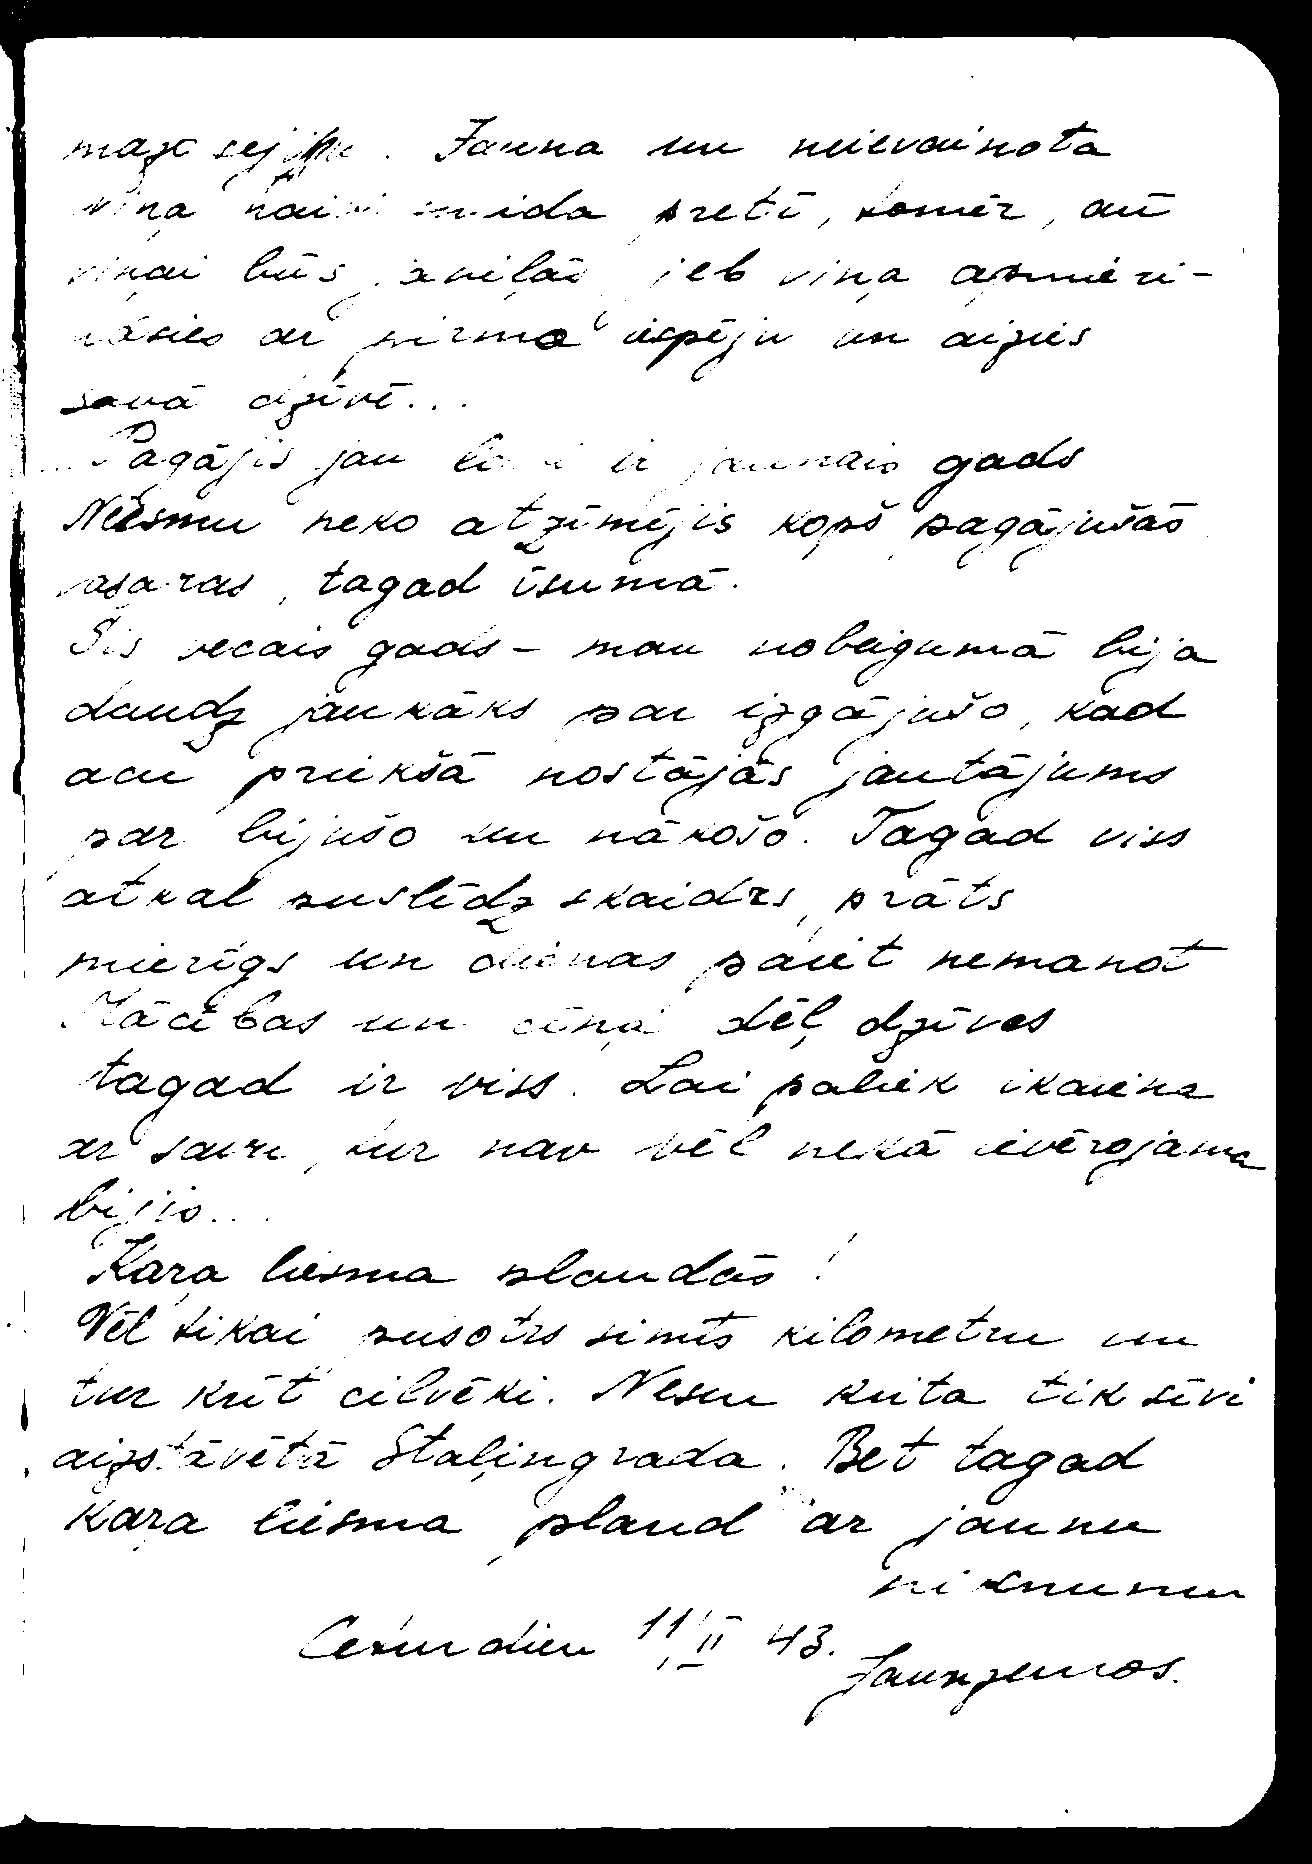 maza sejiņa. Jauna un neievainota
viņa naivi smida pretī, tomēr, arī
viņai būs jāviļās jeb viņa apmieri-
nāsies ar pirmo iespēju un aizies
savā dzīvē...
... Pagājis jau labi ir jaunais gads
Neesmu neko atzīmējis kopš pagājušās
vasaras, tagad īsumā.
Šis vecais gads - man nobeigumā bija
daudz jaukāks par izgājušo, kad
acu priekšā nostājās jautājums
par bijušo un nākošo. Tagad viss
atkal puslīdz skaidrs, prāts
mierīgs un dienas paiet nemanot
Mācības un cīņa dēļ dzīves
tagad ir viss. Lai paliek ikdiena
ar savu, kur nav vēl nekā ievērojama
bijis...
Kaŗa liesma plandās!
Vēl tikai pusotrs simts kilometru un
tur krīt cilvēki. Nesen krita tik sīvi
aizstāvētā Staļingrada. Bet tagad
kaŗa liesma pland ar jaunu
niknumu
Ceturdien 11/II 43.
Jaunzemos.